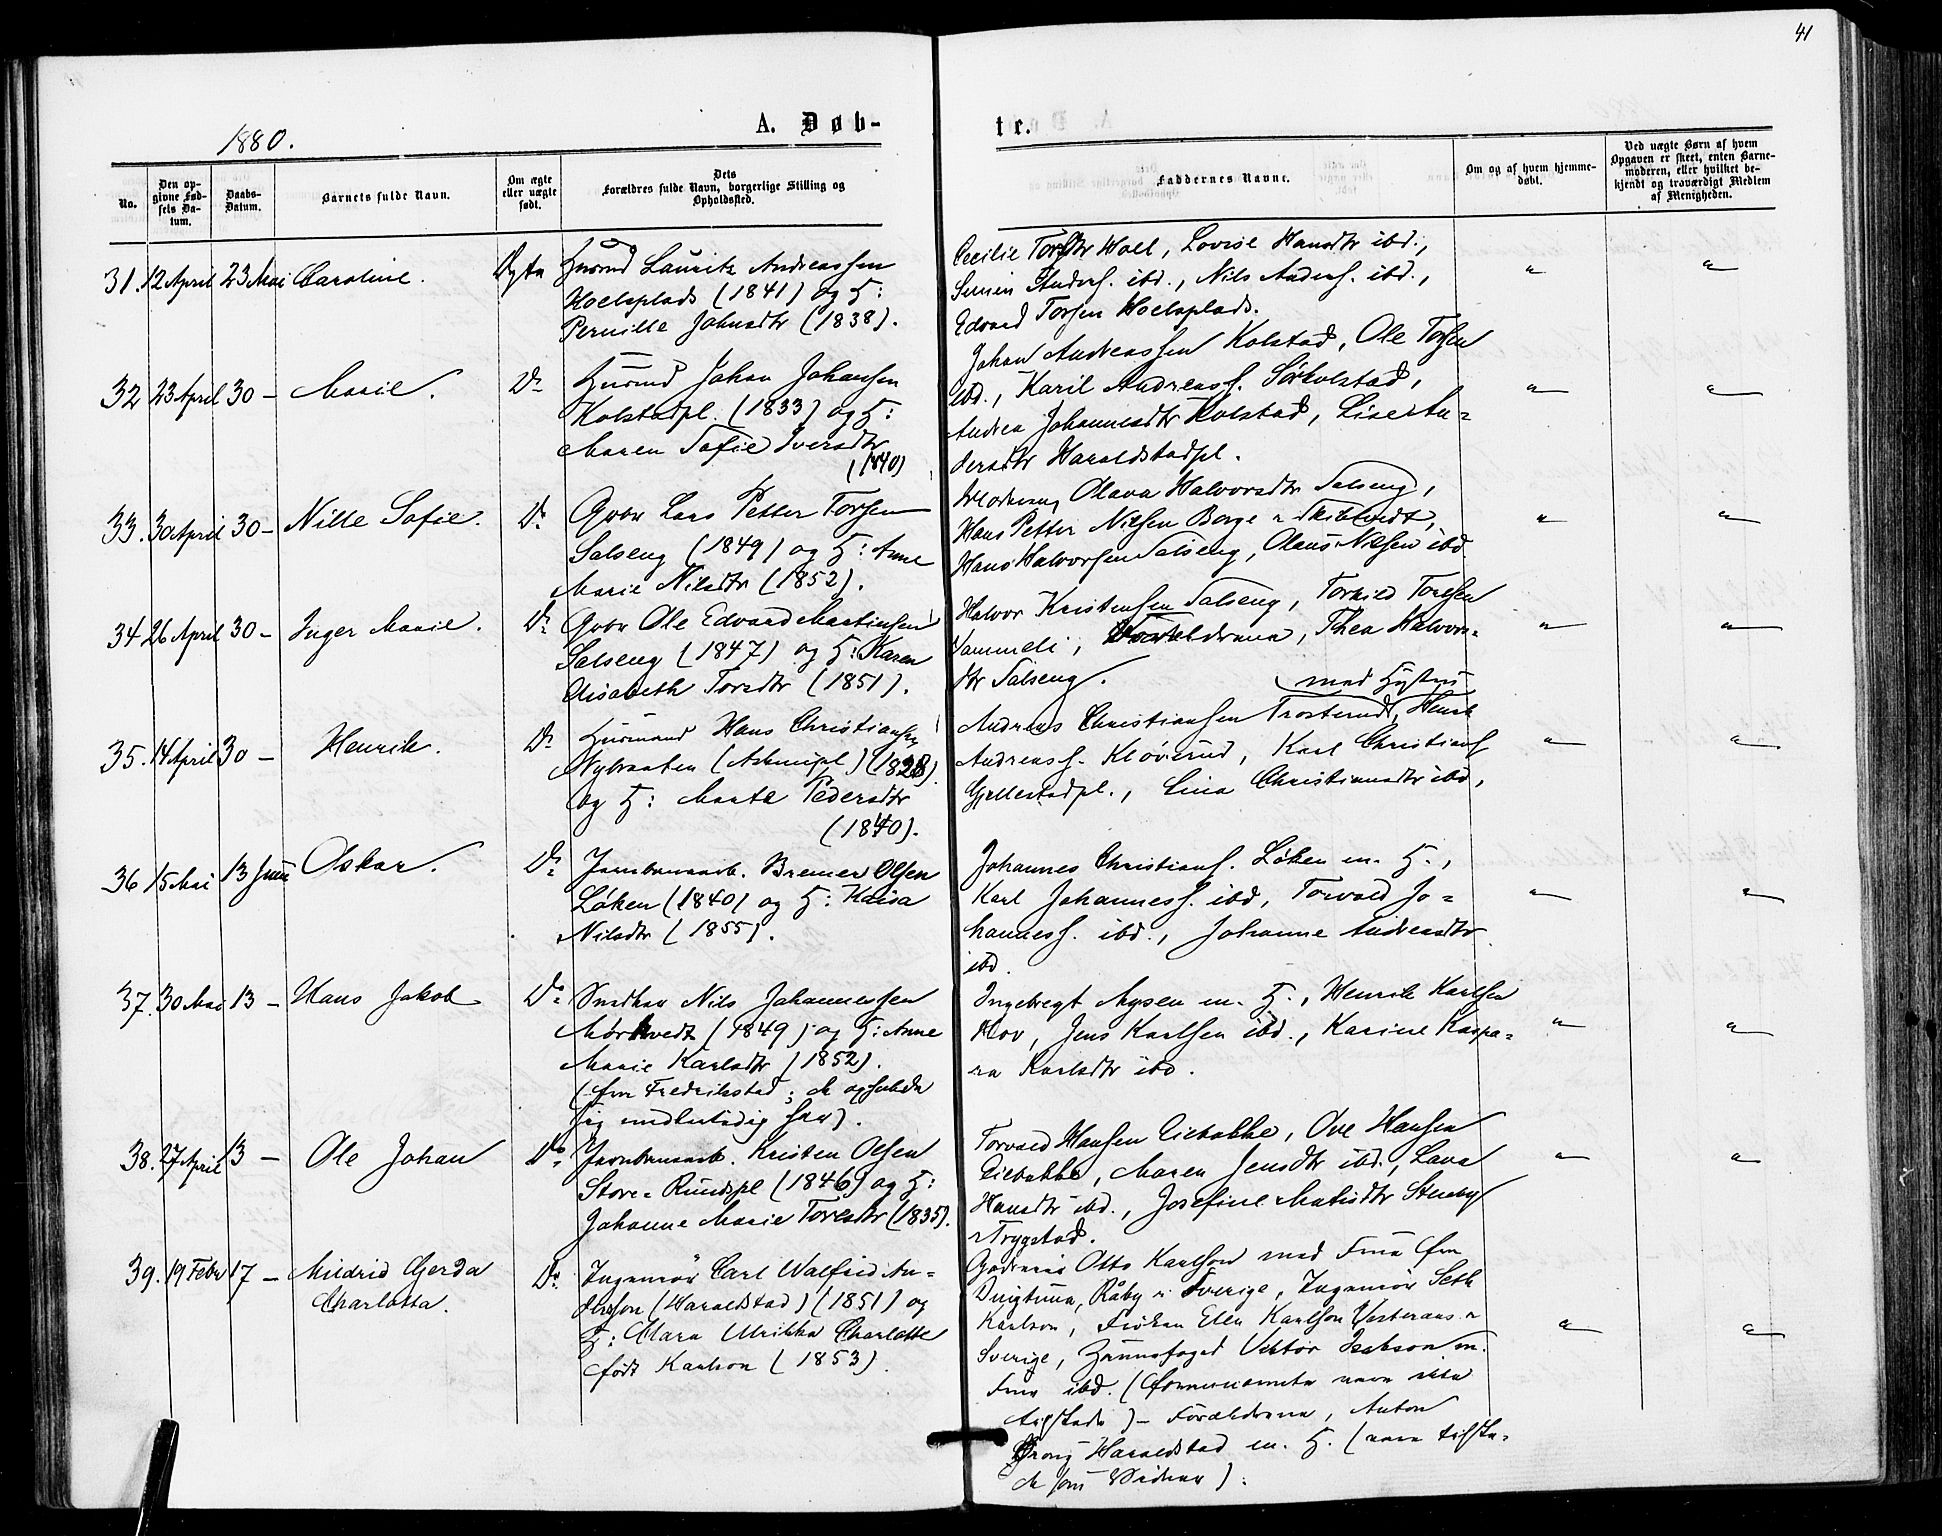 41
1880.
A. Døb-
te.
No.
Den op-
givne Fød-
sels Da-
tum.
Daabs-
Datum.
Barnets fulde Navn.
Om ægte
eller uægte
født.
Dets
Forældres fulde Navn, borgerlige Stilling og
Opholdssted.
Faddernes Navne.
Om og af hvem hjemme-
døbt.
Ved uægte Børn af hvem
Opgaven er skeet, enten Barne-
moderen, eller hvilket be-
kjendt og troværdigt Medlem
af Menigheden.
31. 12 April 23 Mai Caroline. Ægte
Husmd Lauritz Andreassen
Hoelsplads (1841) og H:
Pernille Johnsdtr (1838).
Cecilie Torsdtr Hoel, Lovise Hansdtr ibd.,
Andersf. ibd., Nils Andersf. ibd.,
Edvard Torsen Hoelsplads.
32 23 April 30 - Marie. Do
Husmd Johan Johansen
Kolstadpl. (1833) og H:
Maren Sofie Iversdtr
(1840)
Johan Andreassen Kolstad, Ole Torsen
ibd., Karil Andreasf. Sörkolstad,
Andrea Johannesdtr Kolstad, Lise An-
dersdtr Haraldstadpl.
33. 30 April 30 - Nille Sofie. Do
Gbr Lars Petter Torsen
Salseng (1849) og H: Anne
Marie Nilsdtr (1852).
Moderen, Olava Halvorsdtr Salseng,
Hans Petter Nilsen Borge i Skibtvedt,
Hans Halvorsen Salseng, Olaus Nilsen ibd
34 26 April 30 - Inger Marie. Do
Gbr Ole Edvard Martinsen
Salseng (1847) og H: Karen
Elisabeth Torsdtr (1851).
Halvor Kristensen Salseng, Torkild Toresen
Jammeli, Forældrene, Thea Halvors-
dtr Salseng.
35. 14 April 30 - Henrik. Do
Husmand Hans Christiansen
Nybraaten (Askimpl.) (1828)
og H: Marte Pedersdtr
(1840).
med Hustru
Andreas Christiansen Trosterud, Henrik
Andreasf. Kløverud, Karl Christiansf
Gjellestadpl., Lina Christiansdtr ibd,
36 15 Mai 13 Juni Oskar. Do
Jernbanearb. Bremer Olsen
Løken (1840) og H: Kaisa
Nilsdtr (1855).
Johannes Christiansf. Løken m. H.,
Karl Johannesf. ibd, Torvald Jo-
hannesf. ibd., Johanne Andreasdtr
ibd.
37. 30 Mai 13 - Hans Jakob Do
Snedker Nils Johannessen
Mörkvedt (1849) og H: Anne
Marie Karlsdtr (1852).
(fra Fredrikstad; de opholde
sig midlertidig her).
Ingebregt Mysen m. H., Henrik Karlsen
Hov, Jens Karlsen ibd., Karine Kaspa-
ra Karlsdtr ibd.
38. 27 April 13 - Ole Johan Do
Jernbanearb. Kristen Olsen
Store-Rudspl (1846) og H:
Johanne Marie Toresdtr (1835).
Torvald Hansen Eiebakke, Ove Hansen
Eiebakke, Maren Jensdtr ibd., Lava
Hansdtr ibd., Josefine Matisdtr Stenby
i Trygstad.
39. 19 Febr 17 - Mildrid Gerda
Charlotta. Do
Ingeniør Carl Walfrid An-
dersson (Haraldstad) (1851) og
H: Clara Ulrikka Charlotte
født Karlson (1853).
Godseier Otto Karlson med Frue fra
Dingtuna, Råby i Sverige, Ingeniør Seth
Karlson, Frøken Ellen Karlson Vesteraas i
Sverige, Viktor Isakson m.
Frue ibd. (Fornævnte vare ikke
tilstede) - Forældrene, Anton
Haraldstad m. H. (vare tilste-
de som Vidner).